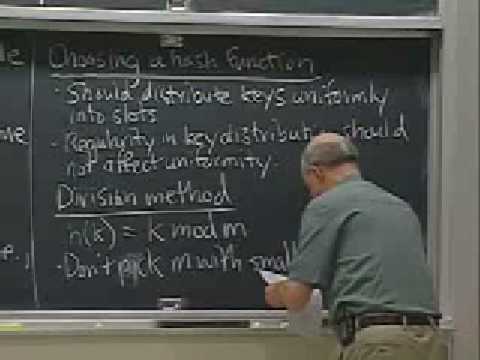 Choosing a hash function
· Should distribute keys uniformly
into slots
· Regularity in key distribution should
not affect uniformity.
Division method
h(k) = k mod m
· Don't pick m with small